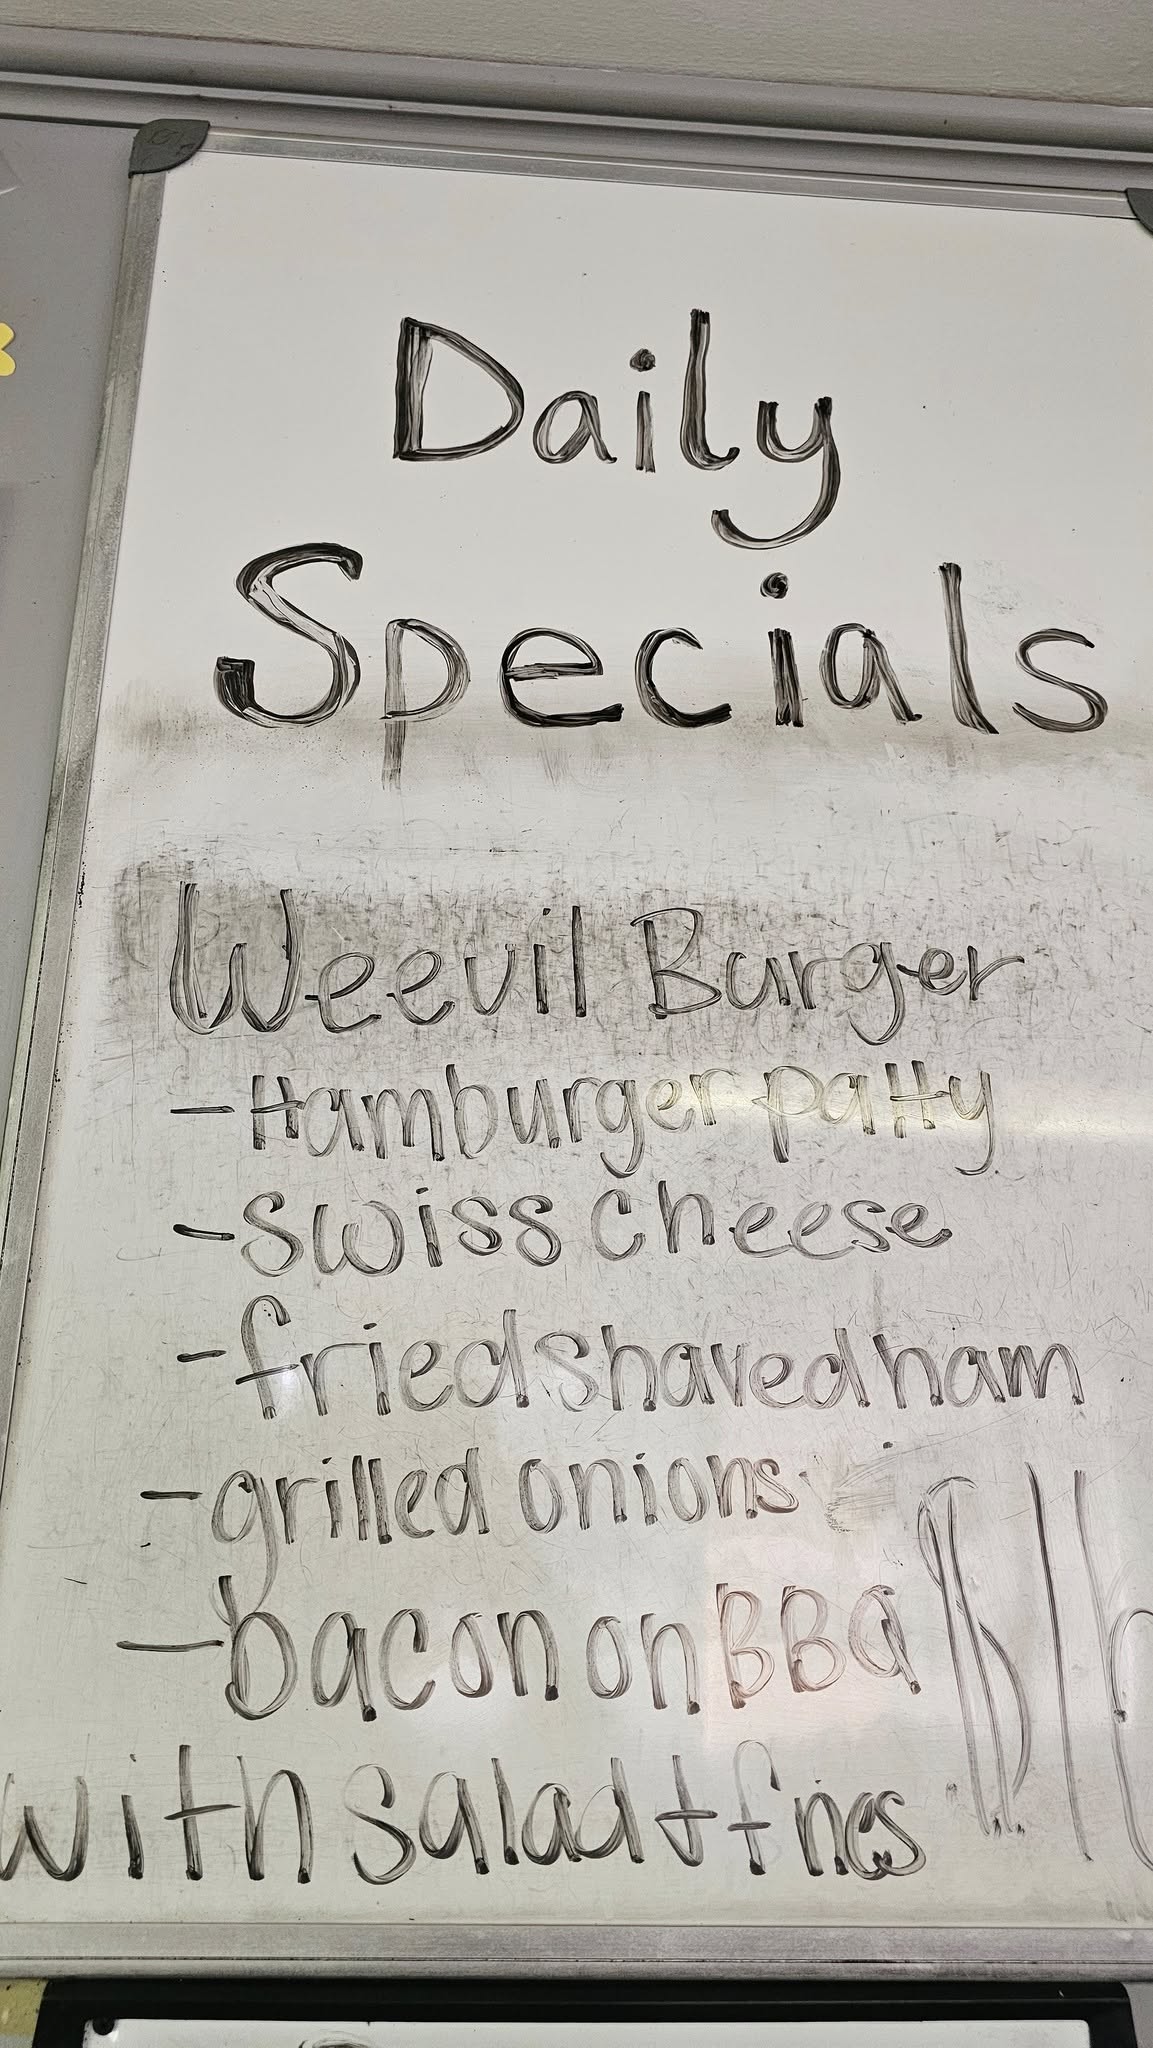 Daily
Specials
Weevil Burger
- Hamburger patty
- Swiss Cheese
- fried shaved ham
- grilled onions
- bacon on BBQ
with salad + fries